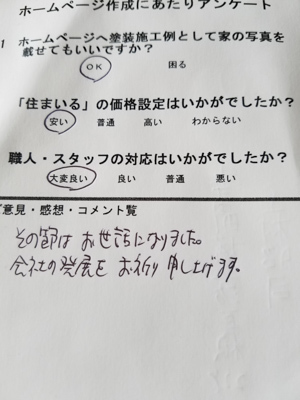 ホームページ作成にあたりアンケート
1 ホームページへ塗装施工例として家の写真を
載せてもいいですか？
ＯＫ 困る
「住まいる」の価格設定はいかがでしたか？
安い 普通 高い わからない
職人・スタッフの対応はいかがでしたか？
大変良い 良い 普通 悪い
ご意見・感想・コメント覧
その節は お世話になりました。
会社の発展を お祈り申し上げます。